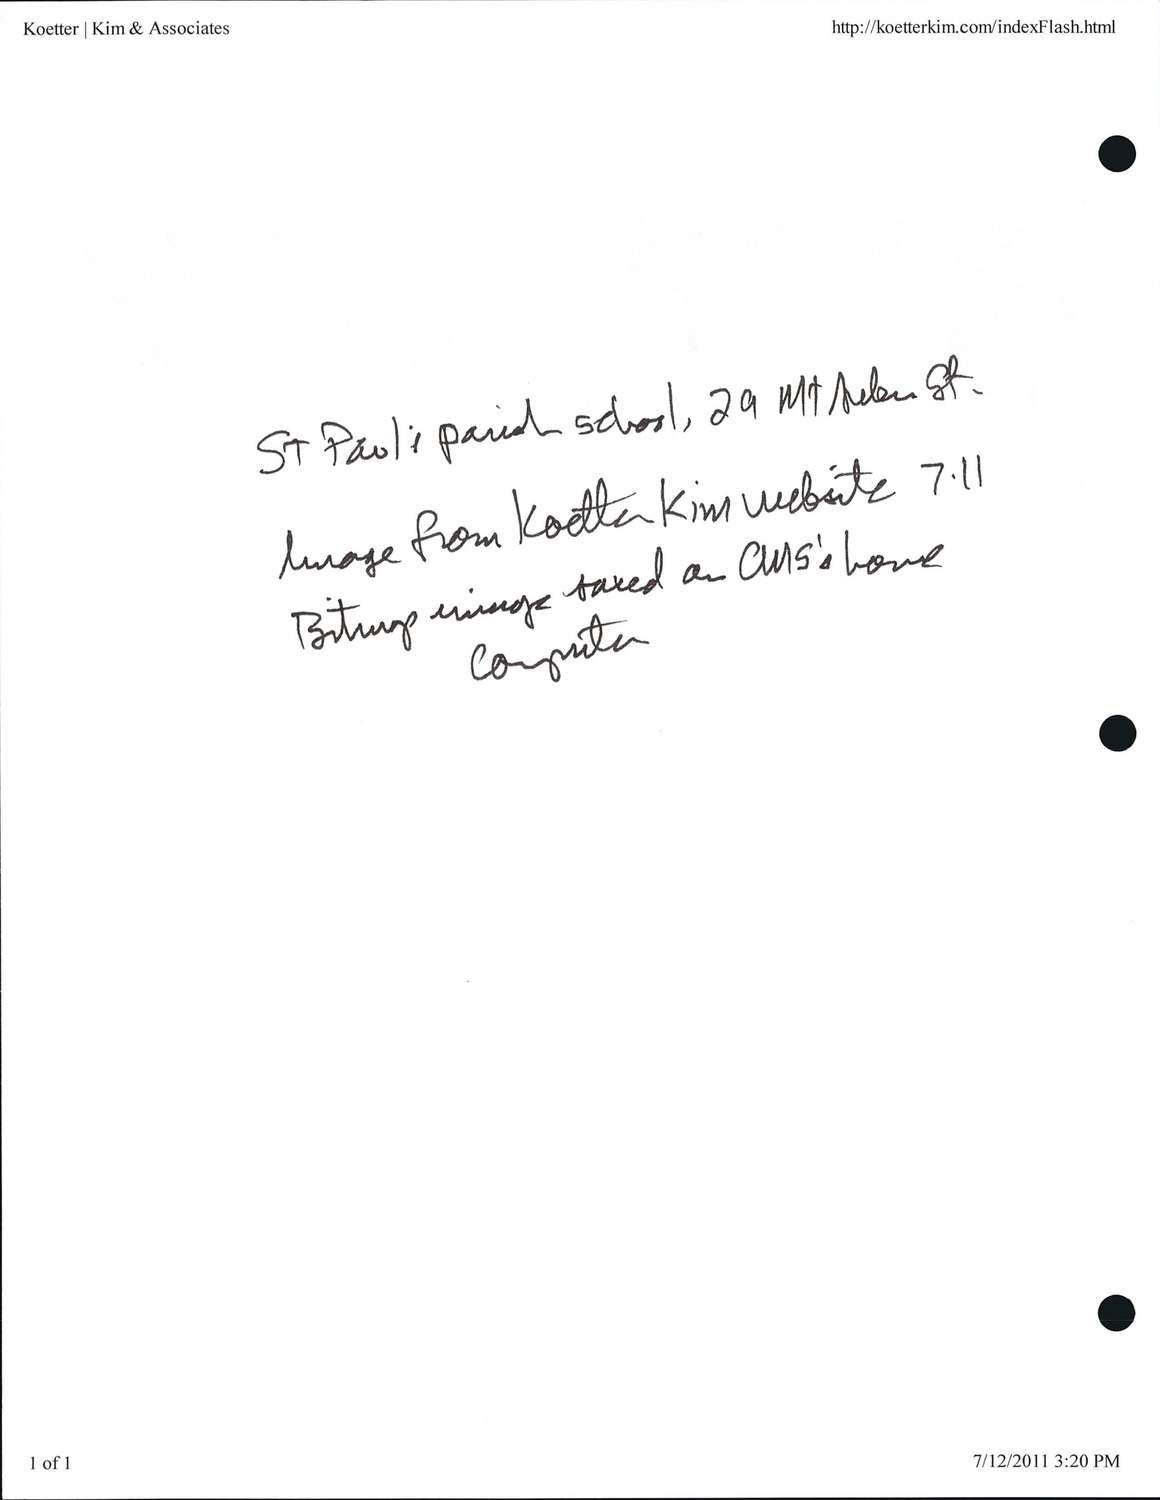 Koetter | Kim & Associates
http://koetterkim.com/indexFlash.html
St Paul's parish school, 29 Mt Auburn St.
Image from Koetter Kim website 7.11
Bitmap image saved on CMS's home
Computer
1 of 1
7/12/2011 3:20 PM